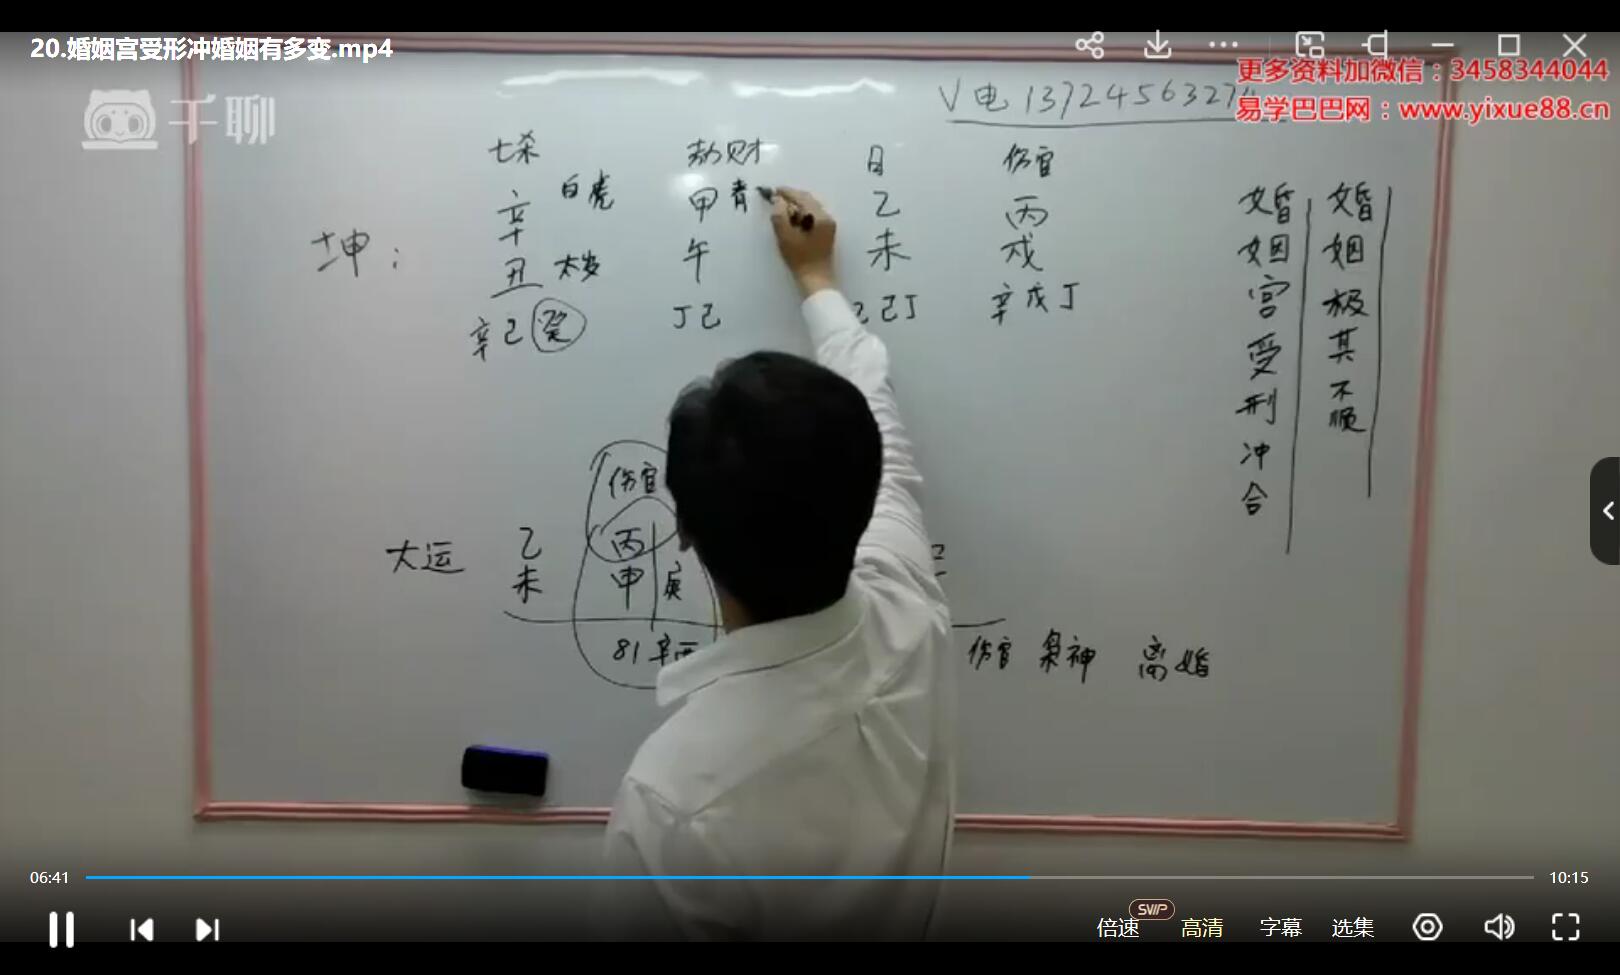 20.婚姻宫受形冲婚姻有多变.mp4
更多资料加微信：3458344044
易学巴巴网：www.yixue88.cn
千聊
V电 137245632
七杀 劫财 日 伤官
辛 白虎 甲 青 乙 丙
坤：
丑 太岁 午 未 戌
辛己癸 丁己 己丁 辛戊丁
婚姻极其不顺
婚姻宫受刑冲合
伤官
大运 乙未 丙申 庚
81 辛酉
伤官 枭神 离婚
06:41
10:15
SVIP
倍速 高清 字幕 选集